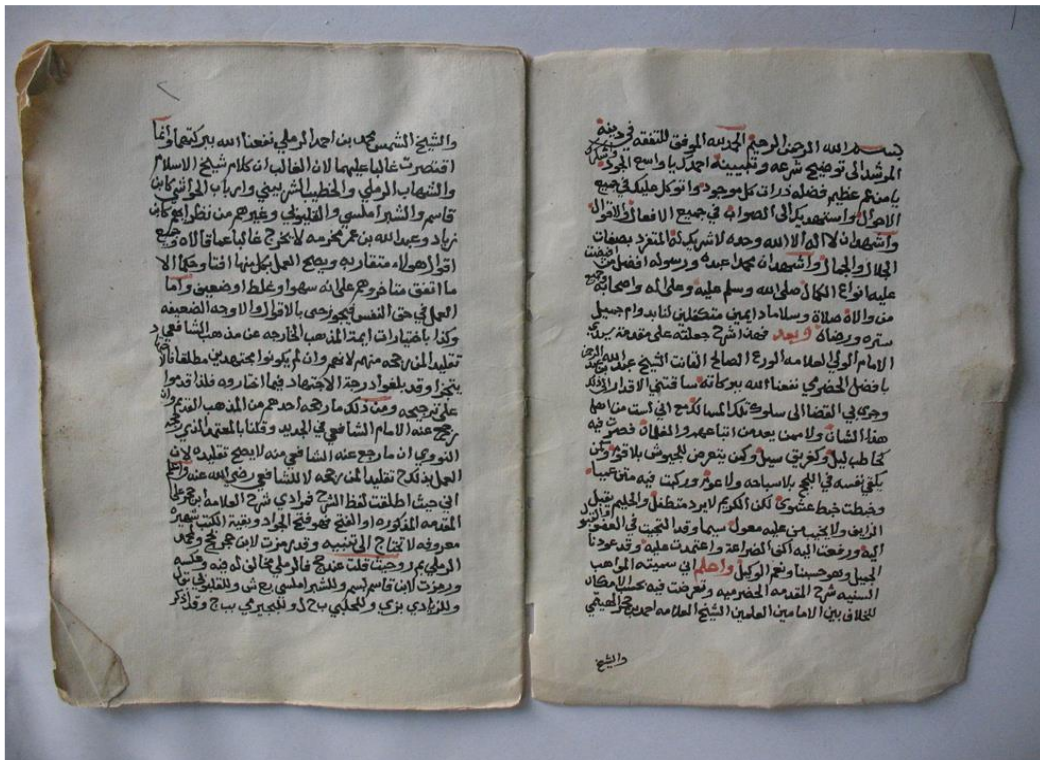 بسم الله الرحمن الرحيم الحمد لله الموفق للتفقه في دينه
المرشد الى توضيح شرعه وتبيينه احمدك يا واسع الجود
يا من عم عظيم فضله ذرات كل موجود واتوكل عليك في جميع
الاحوال واستهديك الى الصواب في جميع الافعال والاقوال
واشهد ان لا اله الا الله وحده لا شريك له المتفرد بصفات
الجلال والجمال واشهد ان محمدا عبده ورسوله افضل من
عليه انواع الكمال صلى الله وسلم عليه وعلى اله واصحابه وجميع
من والاه صلاة وسلاما دايمين متكفلين لنا بدوام جميل
ستره ورضاه وبعد فهذا شرح جعلته على مقدمة سيدي
الامام الولي العلامه الورع الصالح القانت الشيخ عبد الله بن عبد الرحمن
بافضل الحضرمي نفعنا الله ببركاته ساقتني الاقدار الى ذلك
وجرى بي القضا الى سلوك تلك المسالك مع اني لست من اهل
هذا الشان ولا ممن يعد من اتباعهم والغلمان فصرت فيه
كحاطب ليل وكغريق سيل وكمن يتعرض للجيوش بلا قوة وكمن
يلقي نفسه في اللجج بلا سباحه ولا عون وركبت فيه متن عميا
وخبطت خبط عشوى لكن الكريم لا يرد متطفل والحليم يقبل
الزايف ولا يخيب من عليه معول سيما وقد التجيت في العفو
اليه ورفعت اليه اكف الضراعة واعتمدت عليه وقد عودنا
الجميل وهو حسبنا ونعم الوكيل واعلم اني سميته المواهب
السنيه شرح المقدمه الحضرميه وتعرضت فيه بحسب الامكان
للخلاف بين الامامين العلمين الشيخ العلامه احمد بن حجر الهيتمي
والشيخ
والشيخ الشمس محمد بن احمد الرملي نفعنا الله ببركتهما وانما
اقتصرت غالبا عليهما لان الغالب ان كلام شيخ الاسلام
والشهاب الرملي والخطيب الشربيني وارباب الحواشي كابن
قاسم والشبراملسي والقليوبي وغيرهم من نظرايهم كابن
زياد وعبد الله بن عمر مخرمه لا يخرج غالبا عما قالاه وجميع
اقوال هولاء متقاربه ويصح العمل بكل منها افتا وحكما الا
ما اتفق متاخروهم على انه سهوا وغلط او ضعيف واما
العمل في حق النفس فيجوز حتى بالاقوال والاوجه الضعيفه
وكذا باختيارات ايمة المذهب الخارجه عن مذهب الشافعي
تقليدا لمن رجحه منهم لانهم وان لم يكونوا مجتهدين مطلقا
وقد بلغوا درجة الاجتهاد فيما اختاروه فلذا قدموا
على ترجيحه ومن ذلك ما رجحه احدهم من المذهب القديم
رجع عنه الامام الشافعي في الجديد وقلنا بالمعتمد الذي
النووي ان ما رجع عنه الشافعي منه لا يصح تقليده لان
العمل بذلك ح تقليدا لمن رجحه لا للشافعي رضي الله عنه واعلم
اني حيث اطلقت لفظ الشرح فمرادي شرح العلامه ابن حجر على
المقدمه المذكوره او الفتح فهو فتح الجواد وبقية الكتب شهيره
معروفه لا تحتاج الى تنبيه وقد رمزت لابن حجر بحج ولمحمد
الرملي بم ر وحيث قلت عند حج فالرملي مخالف له فيه وعكسه
ورمزت لابن قاسم بسم وللشبراملسي بع ش وللقليوبي بق ل
وللزيادي بزي وللحلبي بح ل وللبجيرمي بب ج وقد اذكر